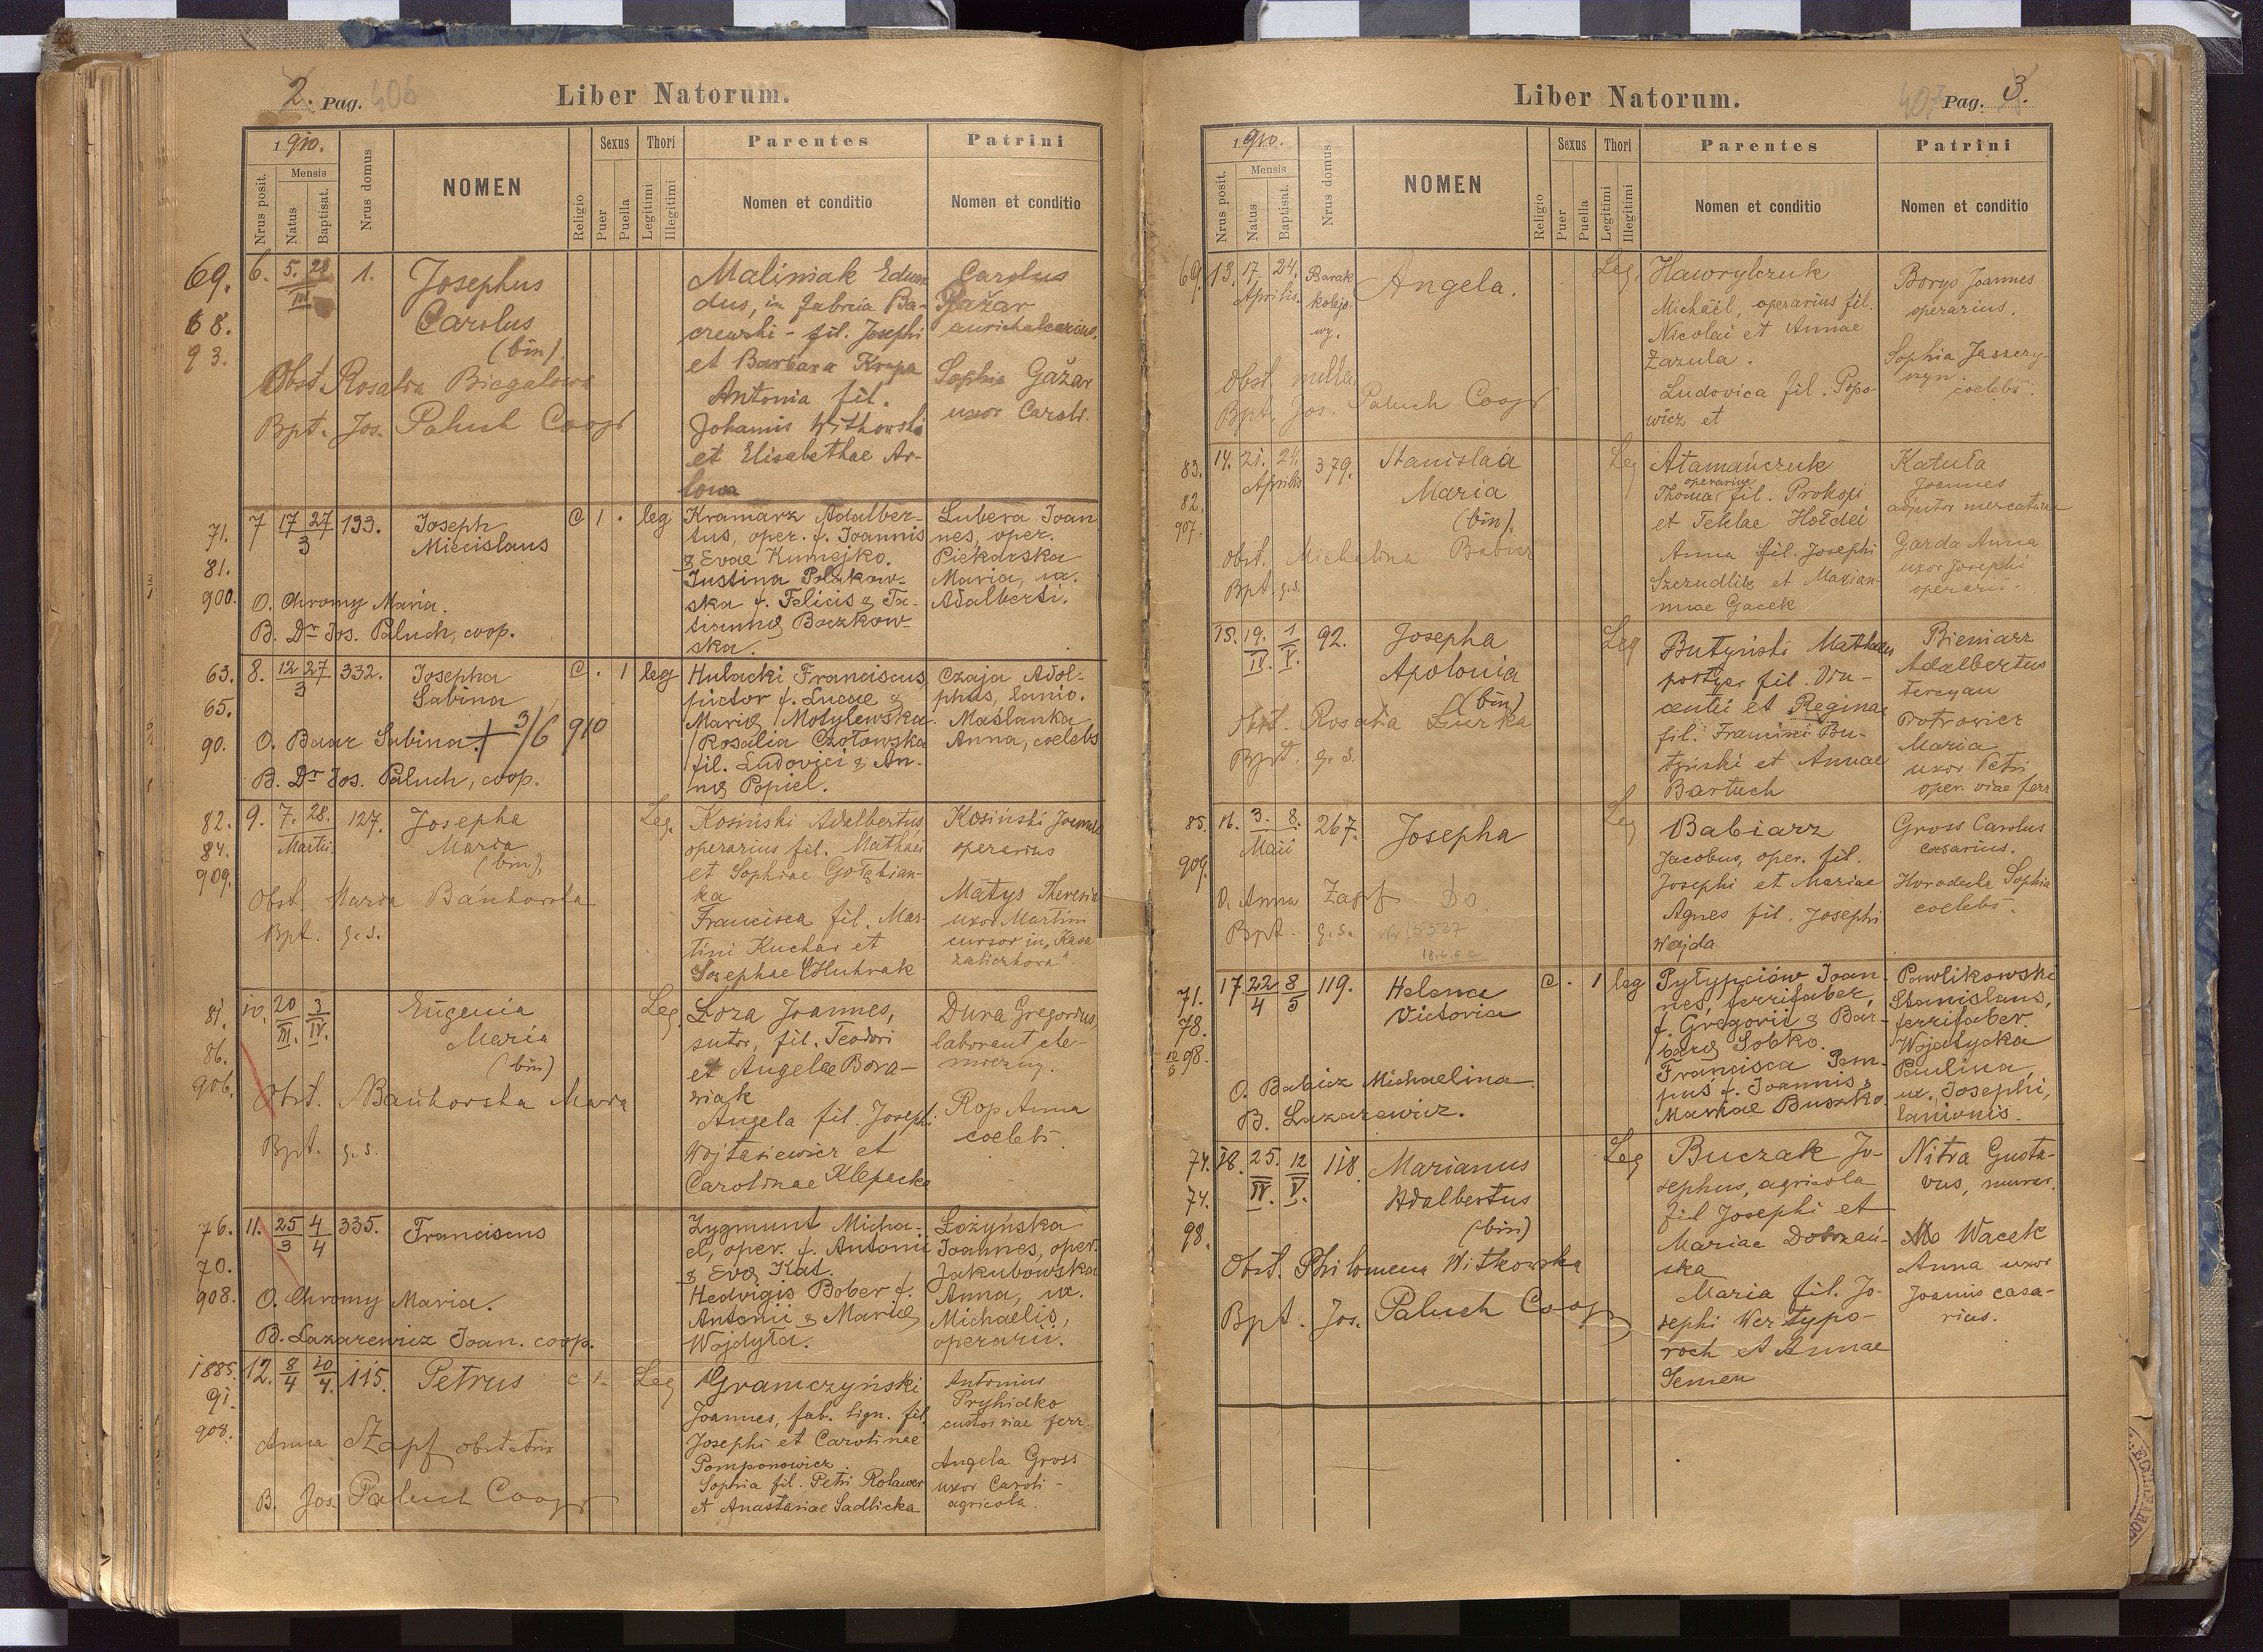 2. Pag. 406
Liber Natorum.
1910.
Nrus posit.
Mensis
Natus
Baptisat.
Nrus domus
NOMEN
Religio
Sexus
Puer
Puella
Thori
Legitimi
Illegitimi
Parentes
Nomen et conditio
Patrini
Nomen et conditio
69.
68.
93.
6. 5. 28 III 1.
Josephus
Carolus
(bin).
Obst. Rosalia Biegalowa
Bpt. Jos. Paluch Coop
Maliniak Eduar
dus, in fabrica Ba-
czewski - fil. Josephi
et Barbara Krupa
Antonia fil.
Johannis Witkowski
et Elisabethae Ar-
lowa
Carolus
Gažar
aurichalcarius.
Sophia Gažar
uxor Caroli.
71.
81.
900.
7 17 27 3 193.
Joseph
Miecislaus
C 1 . leg
O. Chromy Maria.
B. Dr Jos. Paluch, coop.
Kramarz Adalber-
tus, oper. f. Joannis
& Evae Kumejko.
Justina Polakow-
ska f. Felicis & Ta-
Boczkow-
ska.
Lubera Joan
nes, oper.
Piekarska
Maria, ux.
Adalberti.
63.
65.
90.
8. 12 27 3 332.
Josepha
Sabina
C . 1 leg
O. Baar Sabina. + 3/6 910
B. Dr Jos. Paluch, coop.
Hulacki Franciscus,
pictor f. Lucae &
Mariae Motylewska.
Rosalia Czołowska
fil. Ludovici & An-
nae Popiel.
Czaja Adol-
phus, lanio.
Maślanka
Anna, coelebs
82.
84.
909.
9. 7. 28. Martii 127.
Josepha
Maria
(bin).
Leg.
Obst. Maria Bańkowska
Bpt. q. s.
Kosiński Adalbertus
operarius fil. Mathaei
et Sophiae Gołębian-
ka
Francisca fil. Mar-
tini Kuchar et
Josephae
Kosiński Joannes
operarius
Matys Theresia
uxor Martini
cursor in „Kasa
zaliczkowa".
81.
86.
906.
10. 20 III. 3 IV.
Eugenia
Maria
(bin)
Leg.
Obst. Bańkowska Maria
Bpt. q. s.
Łoza Joannes,
sutor, fil. Teodori
et Angelae Bora-
niak
Angela fil. Josephi
Wojtasiewicz et
Carolinae Klepacka
Dura Gregorius,
laborant che-
miczny.
Rop Anna
coelebs.
76.
70.
908.
11. 25 3 4 4 335.
Franciscus
O. Chromy Maria.
B. Lazarewicz Joan. coop.
Zygmunt Micha-
el, oper. f. Antonii
& Evae Kat.
Hedvigis Bober f.
Antonii & Mariae
Wojdyła.
Łożyńska
Joannes, oper.
Jakubowska
Anna, ux.
Michaelis,
operarii.
1885.
91.
908.
12. 8 4 10 4. 115.
Petrus
c 1. Leg
Anna Zapf obstetrix
B. Jos. Paluch Coop
Gramczyński
Joannes, fab. lign. fil.
Josephi et Carolinae
Pomponowicz
Sophia fil. Petri Rolawer
et Anastasiae Sadlicka
Antonius
Pryhidko
custos viae ferr.
Angela Gross
uxor Caroli -
agricola.
Liber Natorum.
407 Pag. 3.
1910.
Nrus posit.
Mensis
Natus
Baptisat.
Nrus domus
NOMEN
Religio
Sexus
Puer
Puella
Thori
Legitimi
Illegitimi
Parentes
Nomen et conditio
Patrini
Nomen et conditio
69.
13. 17. 24. Aprilis.
Barak
kolejo-
wy.
Angela.
Leg.
Obst. nulla
Bpt. Jos. Paluch Coop
Hawrylczuk
Michaël, operarius fil.
Nicolai et Annae
Zazula.
Ludovica fil. Popo
wicz et
Borys Joannes
operarius.
Sophia
coelebs.
83.
82.
907.
14. 21. 24. Aprilis 379.
Stanislaa
Maria
(bin).
Leg
Obst. Michalina Babicz
Bpt. q. s.
Atamańczuk
operarius
Thoma fil. Prokopi
et Teklae Hołdei
Anna fil. Josephi
Szczudlik et Marian-
nae Gacek
Katuła
Joannes
adjutor mercaturae
Garda Anna
uxor Josephi
operarii.
15. 19. IV. 1 V. 92.
Josepha
Apolonia
(bin)
Leg
Obst. Rosalia Lurka
Bpt. q. s.
Butyński Mathaeus
portyer fil. Vin-
centii et Reginae
fil. Francisci Bu-
tyński et Annae
Bartuch
Bieniarz
Adalbertus
tercyan
Piotrowicz
Maria
uxor Petri
oper. viae ferr
85.
909.
16. 3. 8. Maii 267.
Josepha
Leg
O. Anna Zapf
Bpt. q. s.
Babiarz
Jacobus, oper. fil.
Josephi et Mariae
Agnes fil. Josephi
Wajda
Gross Carolus
casarius.
Horodecka Sophia
coelebs.
71.
78.
98.
17. 22 4 8 5 119.
Helena
Victoria
C . 1 leg
O. Babicz Michaelina
B. Lazarewicz.
Pyłypciów Joan-
nes, ferrifaber,
f. Gregorii & Bar-
barae Sobko.
Francisca Pem-
puś f. Joannis &
Mariae Buszko.
Pawlikowski
Stanislaus,
ferrifaber.
Wojatycka
Paulina,
ux. Josephi,
lanionis.
74.
74.
98.
18. 25. IV. 12 V. 118.
Marianus
Adalbertus
(bin)
Leg
Obst. Philomena Witkowska
Bpt. Jos. Paluch Coop
Buczak Jo-
sephus, agricola
fil Josephi et
Mariae Dobrzań-
ska
Maria fil. Jo-
sephi Wertypo-
roch et Annae
Semen
Nitra Gusta-
vus, murar.
Wacek
Anna uxor
Joannis casa-
rius.